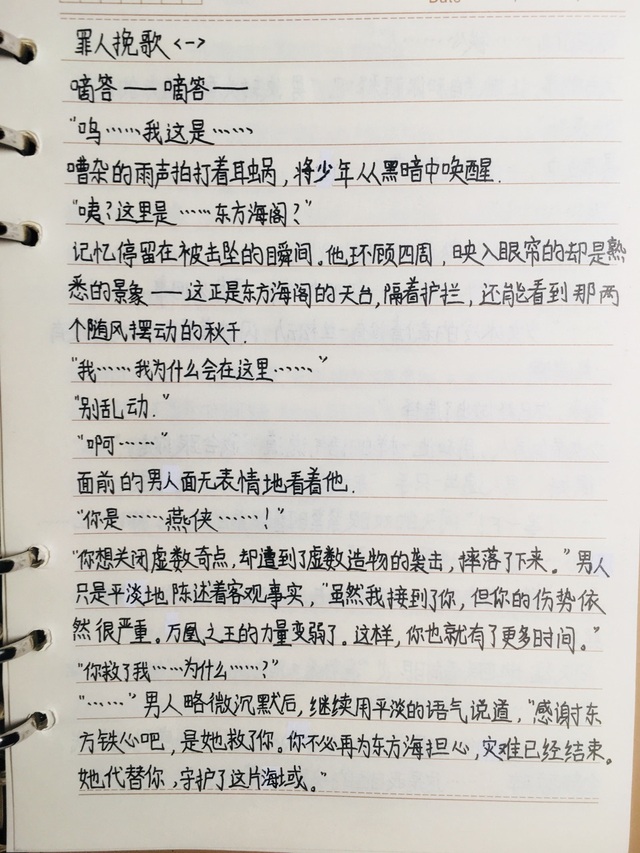 Date
罪人挽歌<一>
嘀答——嘀答——
“呜……我这是……
嘈杂的雨声拍打着耳蜗，将少年从黑暗中唤醒.
“咦?这里是……东方海阁?”
记忆停留在被击坠的瞬间。他环顾四周，映入眼帘的却是熟
悉的景象——这正是东方海阁的天台,隔着护拦，还能看到那两
个随风摆动的秋千.
“我……我为什么会在这里……”
“别乱动.”
“啊……”
面前的男人面无表情地看着他.
“你是……燕侠……!”
“你想关闭虚数奇点,却遭到了虚数造物的袭击，摔落了下来。”男人
只是平淡地陈述着客观事实，“虽然我接到了你，但你的伤势依
然很严重。万凰之王的力量变弱了。这样，你也就有了更多时间。”
“你救了我……为什么……?”
“……”男人略微沉默后，继续用平淡的语气说道，“感谢东
方铁心吧，是她救了你。你不必再为东方海担心，灾难已经结束。
她代替你，守护了这片海域。”